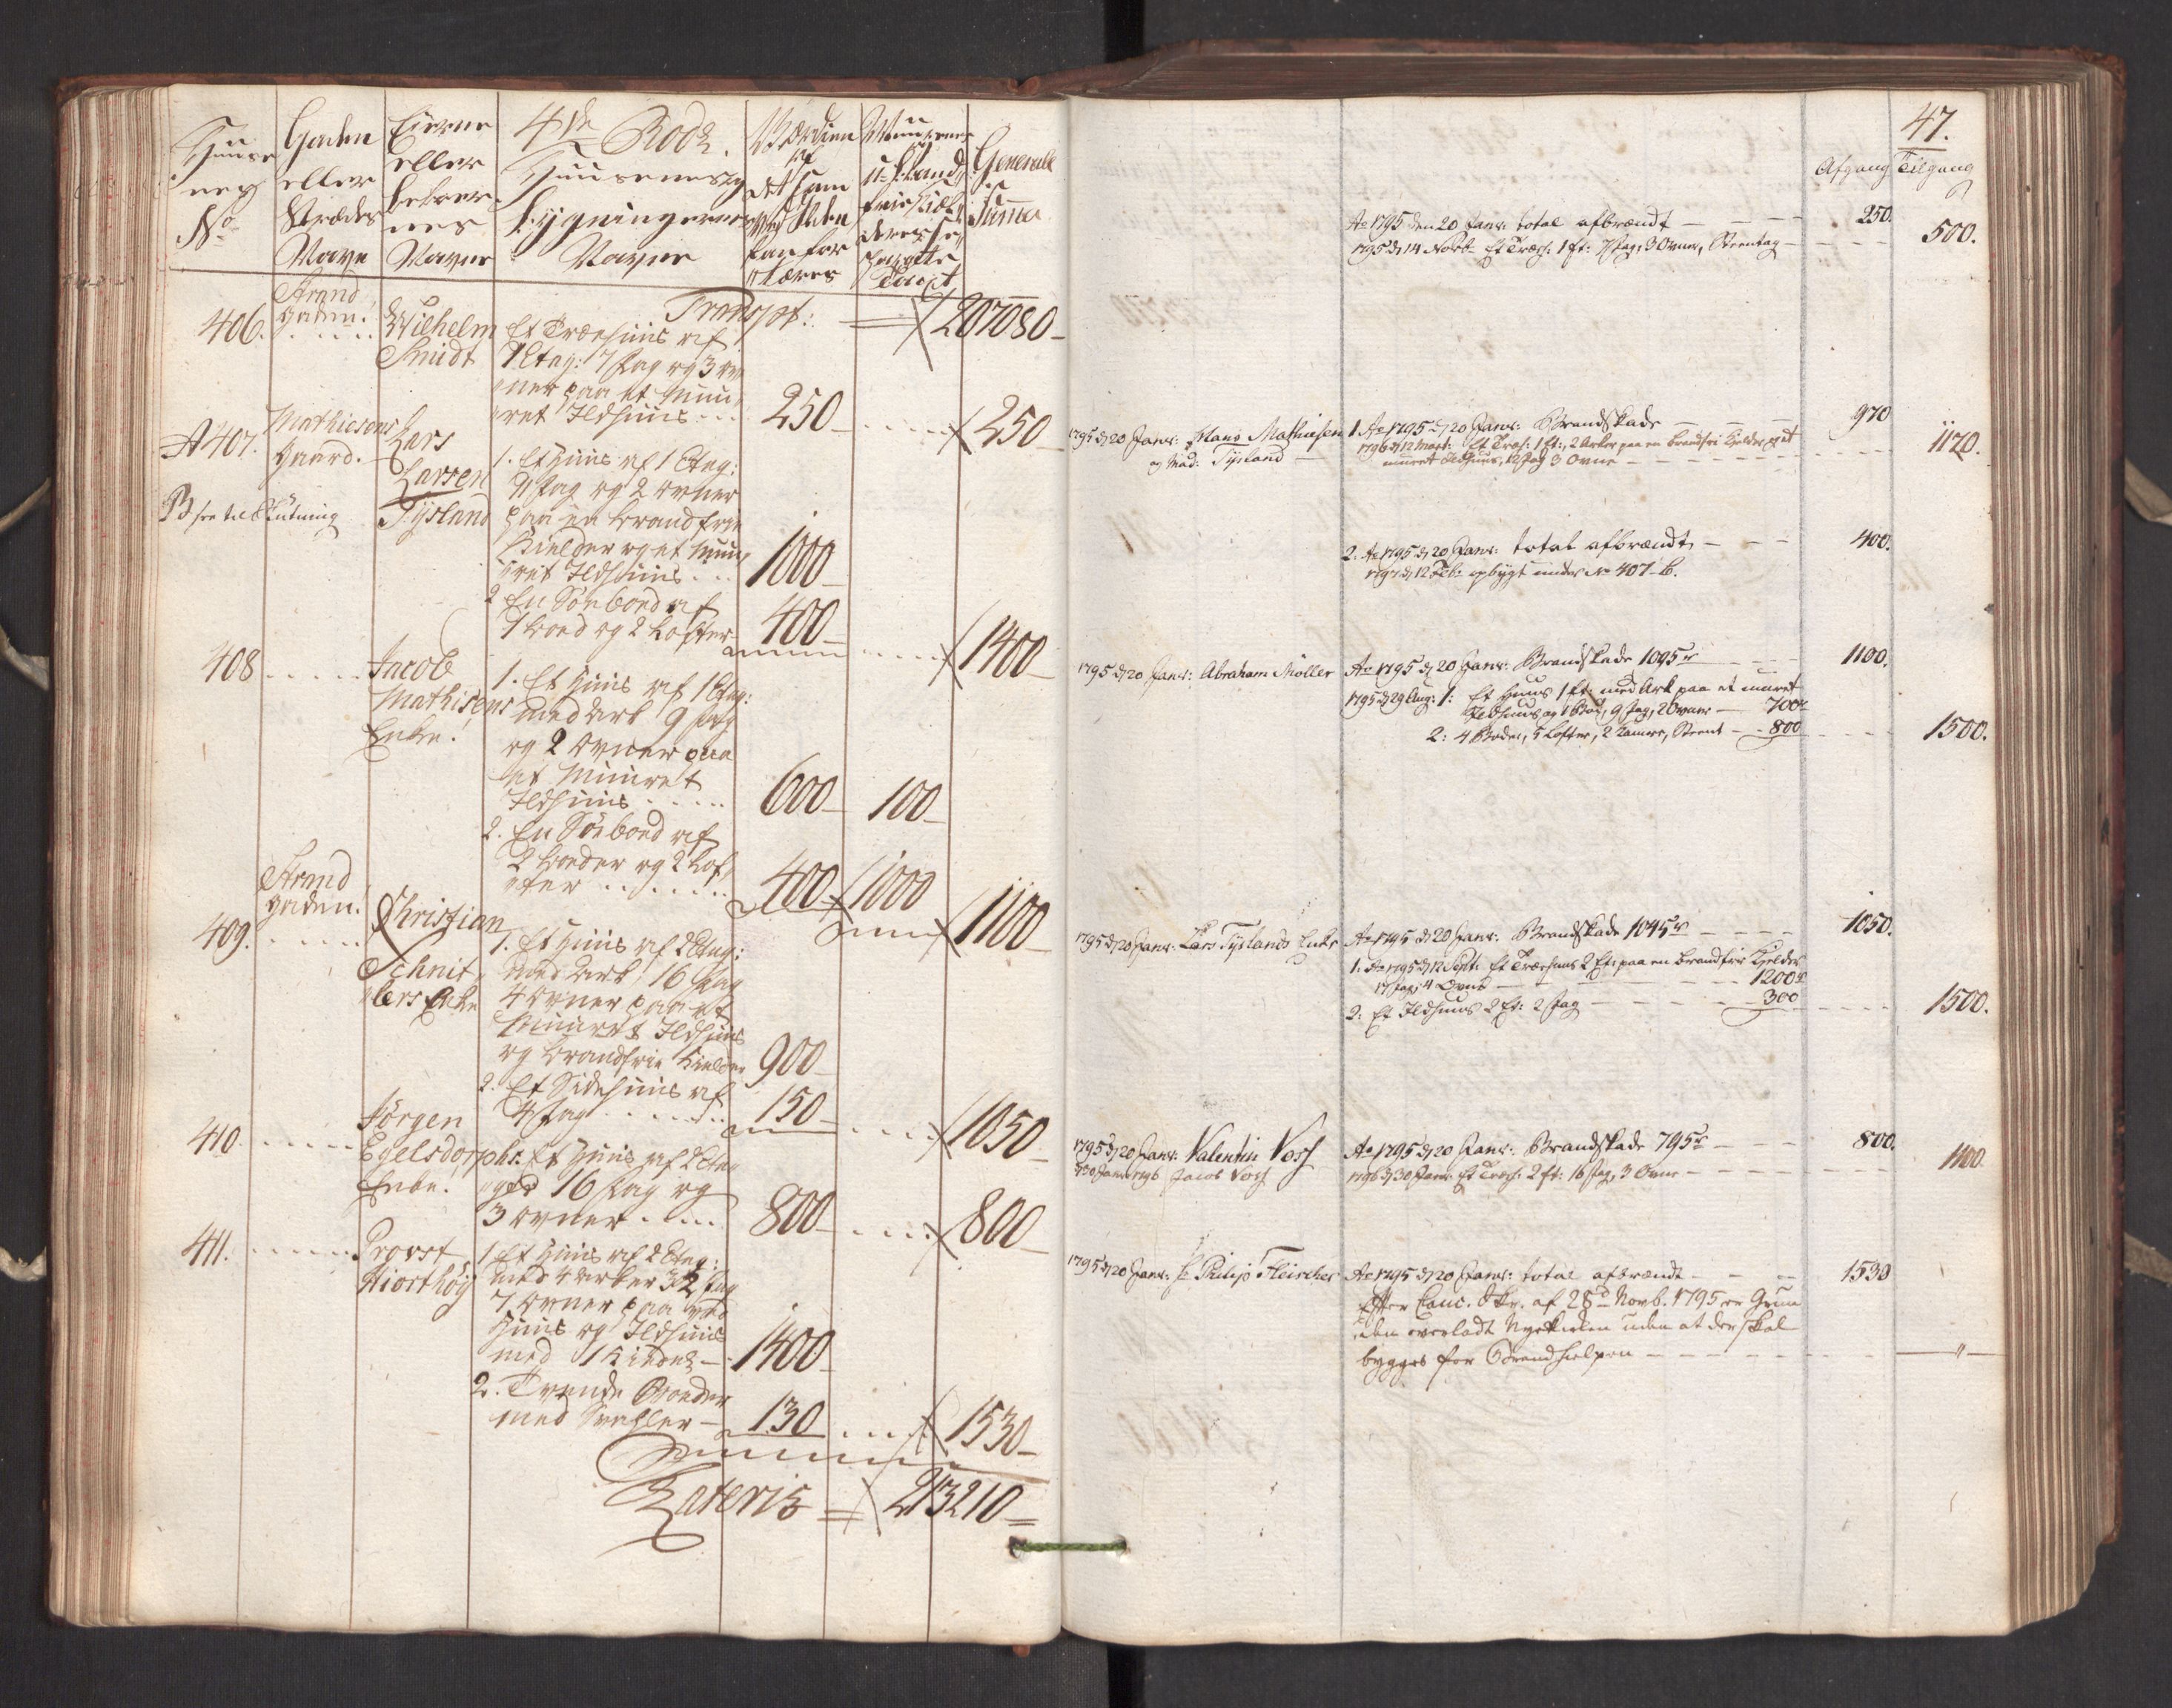 Huuse
nes
No
Gaden
eller
Strædes
Navn
Eierne
eller
beboer-
nes
Navne
4de Rode.
Huusenes og
bÿgningernes
Navne
Værdien
af
det som
ved Ilden
kan for
tæres
Muurenes
Generale
Summa
Transpt: 207080
406.
Strand
gaden.
Wilhelm
Smidt
Et Træehuus af
1 Etag: 7 fag og 3 ov
ner paa et muu
ret Ildhuus ... 250 250
A 407.
Mathiesens
Gaard.
Lars
Larsen
Tÿsland
B see til Slutning
1. Et Huus af 1 Etag:
11 fag og 2 ovner
paa en brandfrie
Kielder og et muu
ret Ildhuus ... 1000
2 En Söeboed af
1 boed og 2 Lofter 400 1400
408
Jacob
Mathisens
Enke.
1. Et Huus af 1 Etag:
med ark 9 fag
og 2 ovner paa
et muuret
Ildhuus ..... 600 100
2. En Söeboed af
2 boeder og 2 Lof
ter ....... 400 1000 1100
409.
Strand
gaden.
Christian
Schnit
lers Enke
1. Et Huus af 2 Etag:
med ark, 16 fag
4 ovner paa et
muuret Ildhuus
og brandfrie Kielder 900
2. Et Sidehuus af
4 fag ..... 150 1050
410.
Jörgen
Egelsdorphs
Enke.
Et Huus af 2 Etag
16 fag og
3 ovner ..... 800 800
411.
Provst
Hiorthöÿ
1 Et Huus af 2 Etag:
med 4 arker 32 fag
7 ovner paa
Huus og Ildhuus
med 1 Kielder 1400
2. Tvende Boeder
med Svahler 130 1530
Lateris 213210
47.
Afgang Tilgang
Ao 1795 den 20 Janr. total afbrændt 250.
1795 d. 14 Novb. Et Træeh. 1 Et: 7 fag, 3 Ovner, Steentag 500.
1795 d. 20 Janr: Hans Mathiesen
og Mad: Tÿsland
1 Ao 1795 d. 20 Janr: Brandskade 970
1796 d. 12 Mart: Et Træh: 1 Et:, 2 Arker paa en brandfri Kielder, og et
muret Ildhuus, 12 fag 3 Ovne 1170.
2. Ao 1795 d. 20 Janr: total afbrændt 400.
1797 d. 12 Feb: opbÿgt under No 407-b.
1795 d. 20 Janr: Abraham Möller
Ao 1795 d. 20 Janr: Brandskade 1095 r 1100.
1795 d. 29 Aug: 1: Et Huus 1 Et: med Ark paa et muret
Ildhuus og 1 Bod, 9 fag, 2 Ovner 700 r
2: 4 Boder, 5 Lofter, 2 Steent 800 1500.
1795 d. 20 Janr: Lars Tÿslands Enke
Ao 1795 d. 20 Janr: Brandskade 1045 r 1050.
1. Ao 1795 d. 12 Sept: Et Træehuus 2 Et: paa en brandfrie Kielder
17 fag, 4 Ovne 1200 r
2: Et Ildhuus 2 Et: 2 fag 300 1500.
1795 d. 20 Janr: Valentin Voss
d. 30 Janr 1796 Jacob Voss
Ao 1795 d. 20 Janr: Brandskade 795 r 800.
1796 d. 30 Janr Et Træh: 2 Et: 16 fag, 3 Ovne 1100
1795 d. 20 Janr: Philip Fleischer
Ao 1795 d. 20 Janr: total afbrændt 1530
Efter Canc. Skr. af 28d Novb. 1795 er Grun
den overladt Nÿekirken uden at der skal
bygges for Brandhielpen "